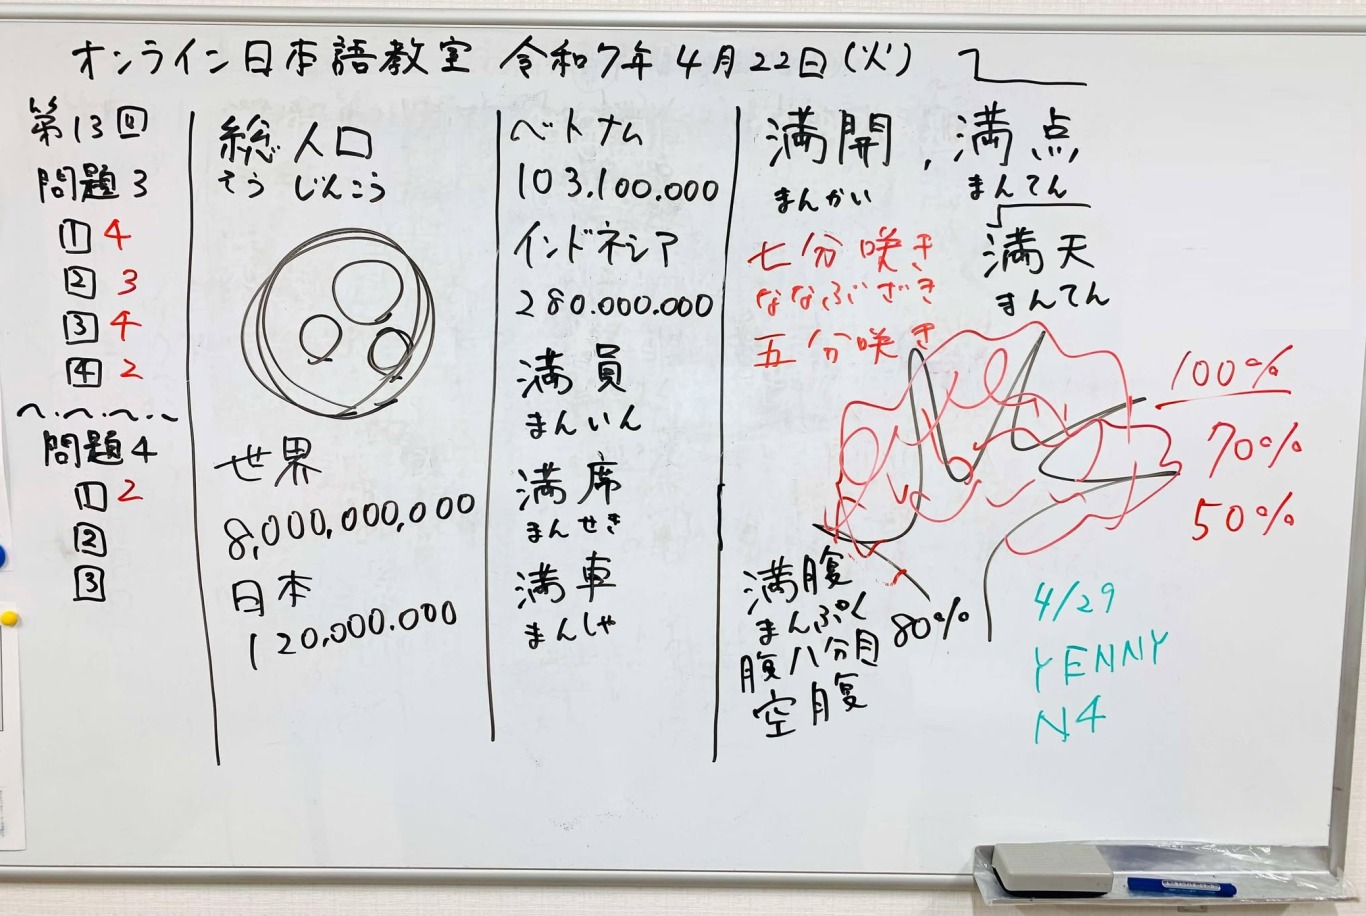 オンライン日本語教室 令和7年4月22日(火)
第13回
問題3
1 4
2 3
3 4
4 2
問題4
1 2
2
3
総人口
そう じんこう
世界
8,000,000,000
日本
120,000.000
ベトナム
103.100.000
インドネシア
280.000.000
満員
まんいん
満席
まんせき
満車
まんしゃ
満開, 満点
まんかい まんてん
七分咲き
ななぶざき
五分咲き
満天
まんてん
100%
70%
50%
満腹
まんぷく
腹八分目 80%
空腹
4/29
YENNY
N4